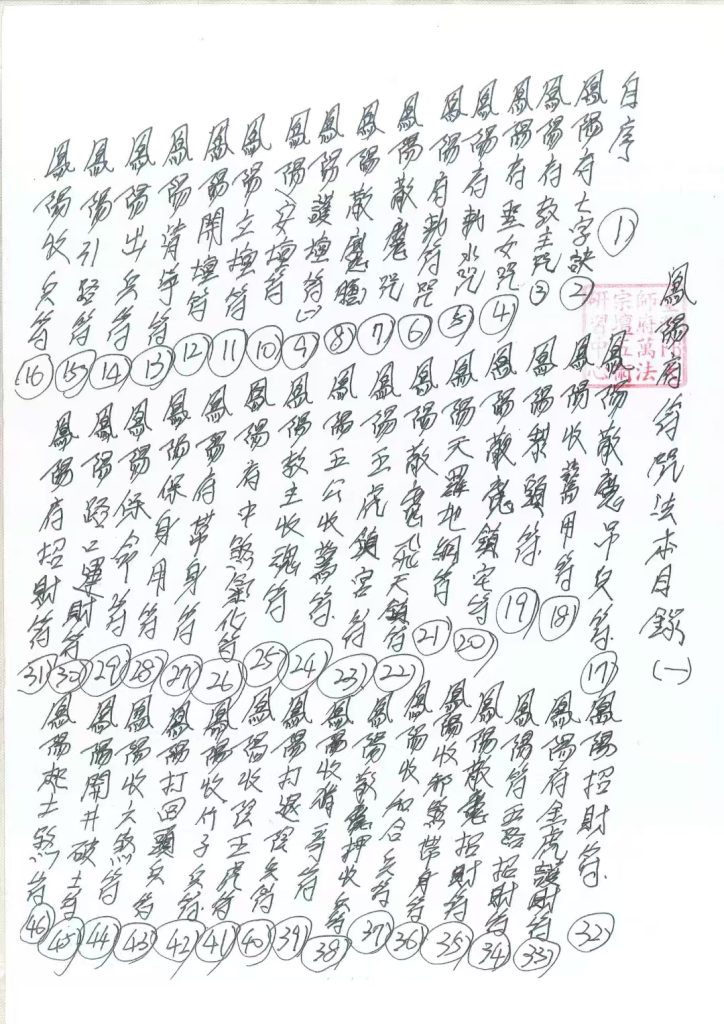 鳳陽府符咒法本目錄(一)
自序 1
鳳陽府七字訣 2
鳳陽府教主咒 3
鳳陽府聖女咒 4
鳳陽府勅水咒 5
鳳陽府勅符咒 6
鳳陽散魔咒 7
鳳陽散魔 8
鳳陽護壇符(一) 9
鳳陽安壇符 10
鳳陽立壇符 11
鳳陽開壇符 12
鳳陽符 13
鳳陽出兵符 14
鳳陽引路符 15
鳳陽收兵符 16
鳳陽散魔吊兵符 17
鳳陽收用符 18
鳳陽犁頭符 19
鳳陽散魔鎮宅符 20
鳳陽天羅地網符 21
鳳陽散魔飛天鎮符 22
鳳陽王虎鎮宮符 23
鳳陽五公收符 24
鳳陽教主收魂符 25
鳳陽府中煞化符 26
鳳陽府帶身符 27
鳳陽保身用符 28
鳳陽保命符 29
鳳陽路口運財符 30
鳳陽府招財符 31
鳳陽招財符 32
鳳陽府金虎護財符 33
鳳陽符五路招財符 34
鳳陽散魔招財符 35
鳳陽收邪煞帶身符 36
鳳陽收和合兵符 37
鳳陽散魔押收兵符 38
鳳陽收符 39
鳳陽打退陰兵符 40
鳳陽收陰王虎符 41
鳳陽收竹子兵符 42
鳳陽打回頭兵符 43
鳳陽收六煞符 44
鳳陽開井破土符 45
鳳陽起土煞符 46
師府萬法
宗壇五術
研習中心